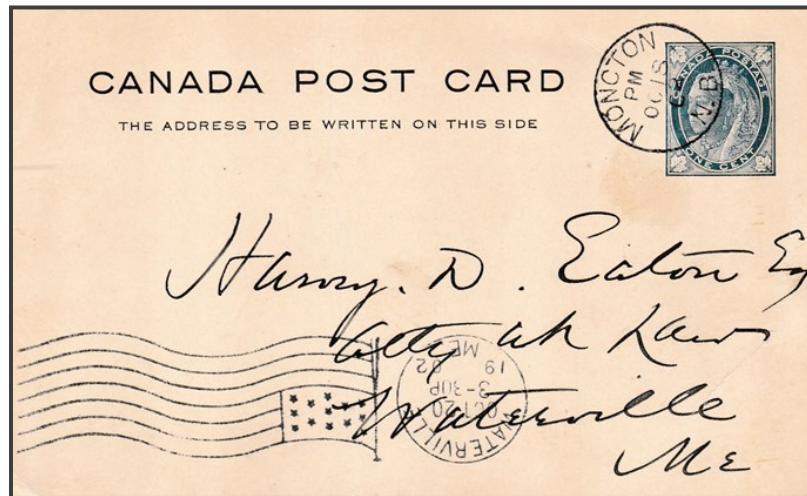 CANADA POST CARD
THE ADDRESS TO BE WRITTEN ON THIS SIDE
MONCTON
PM
OC 18
02
N.B.
CANADA POSTAGE
ONE CENT
Harvey. D. Eaton Esq
Atty at Law
Waterville
Me
WATERVILLE
OCT 20
3-30P
1902
ME